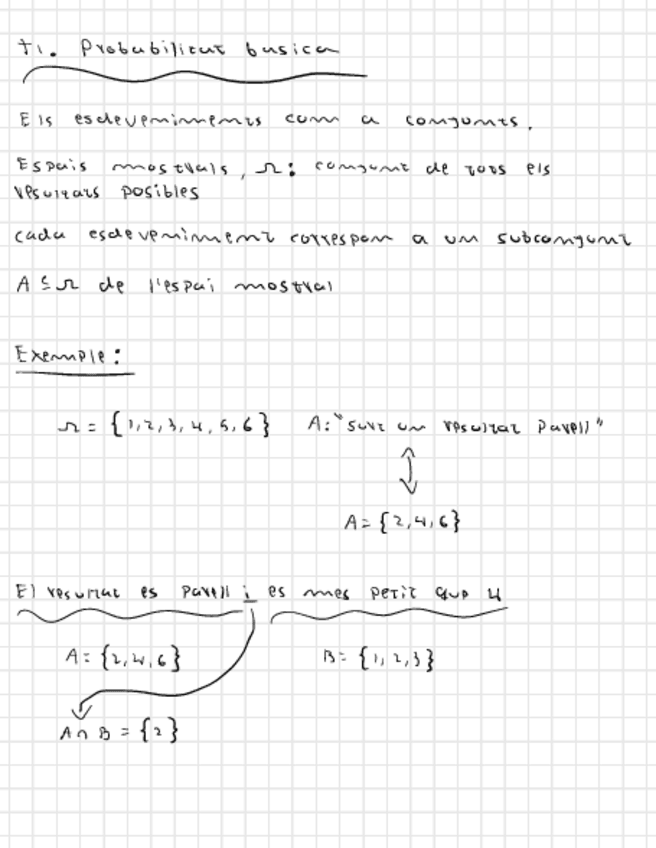 t1. Probabilitat basica
Els esdeveniments com a conjunts.
Espais mostrals, Ω: conjunt de tots els
resultats posibles
cada esdeveniment correspon a un subconjunt
A ⊆ Ω de l'espai mostral
Exemple:
Ω = {1,2,3,4,5,6} A: "surt un resultat parell"
A = {2,4,6}
El resultat es parell i es mes petit que 4
A = {2,4,6} B = {1,2,3}
A ∩ B = {2}